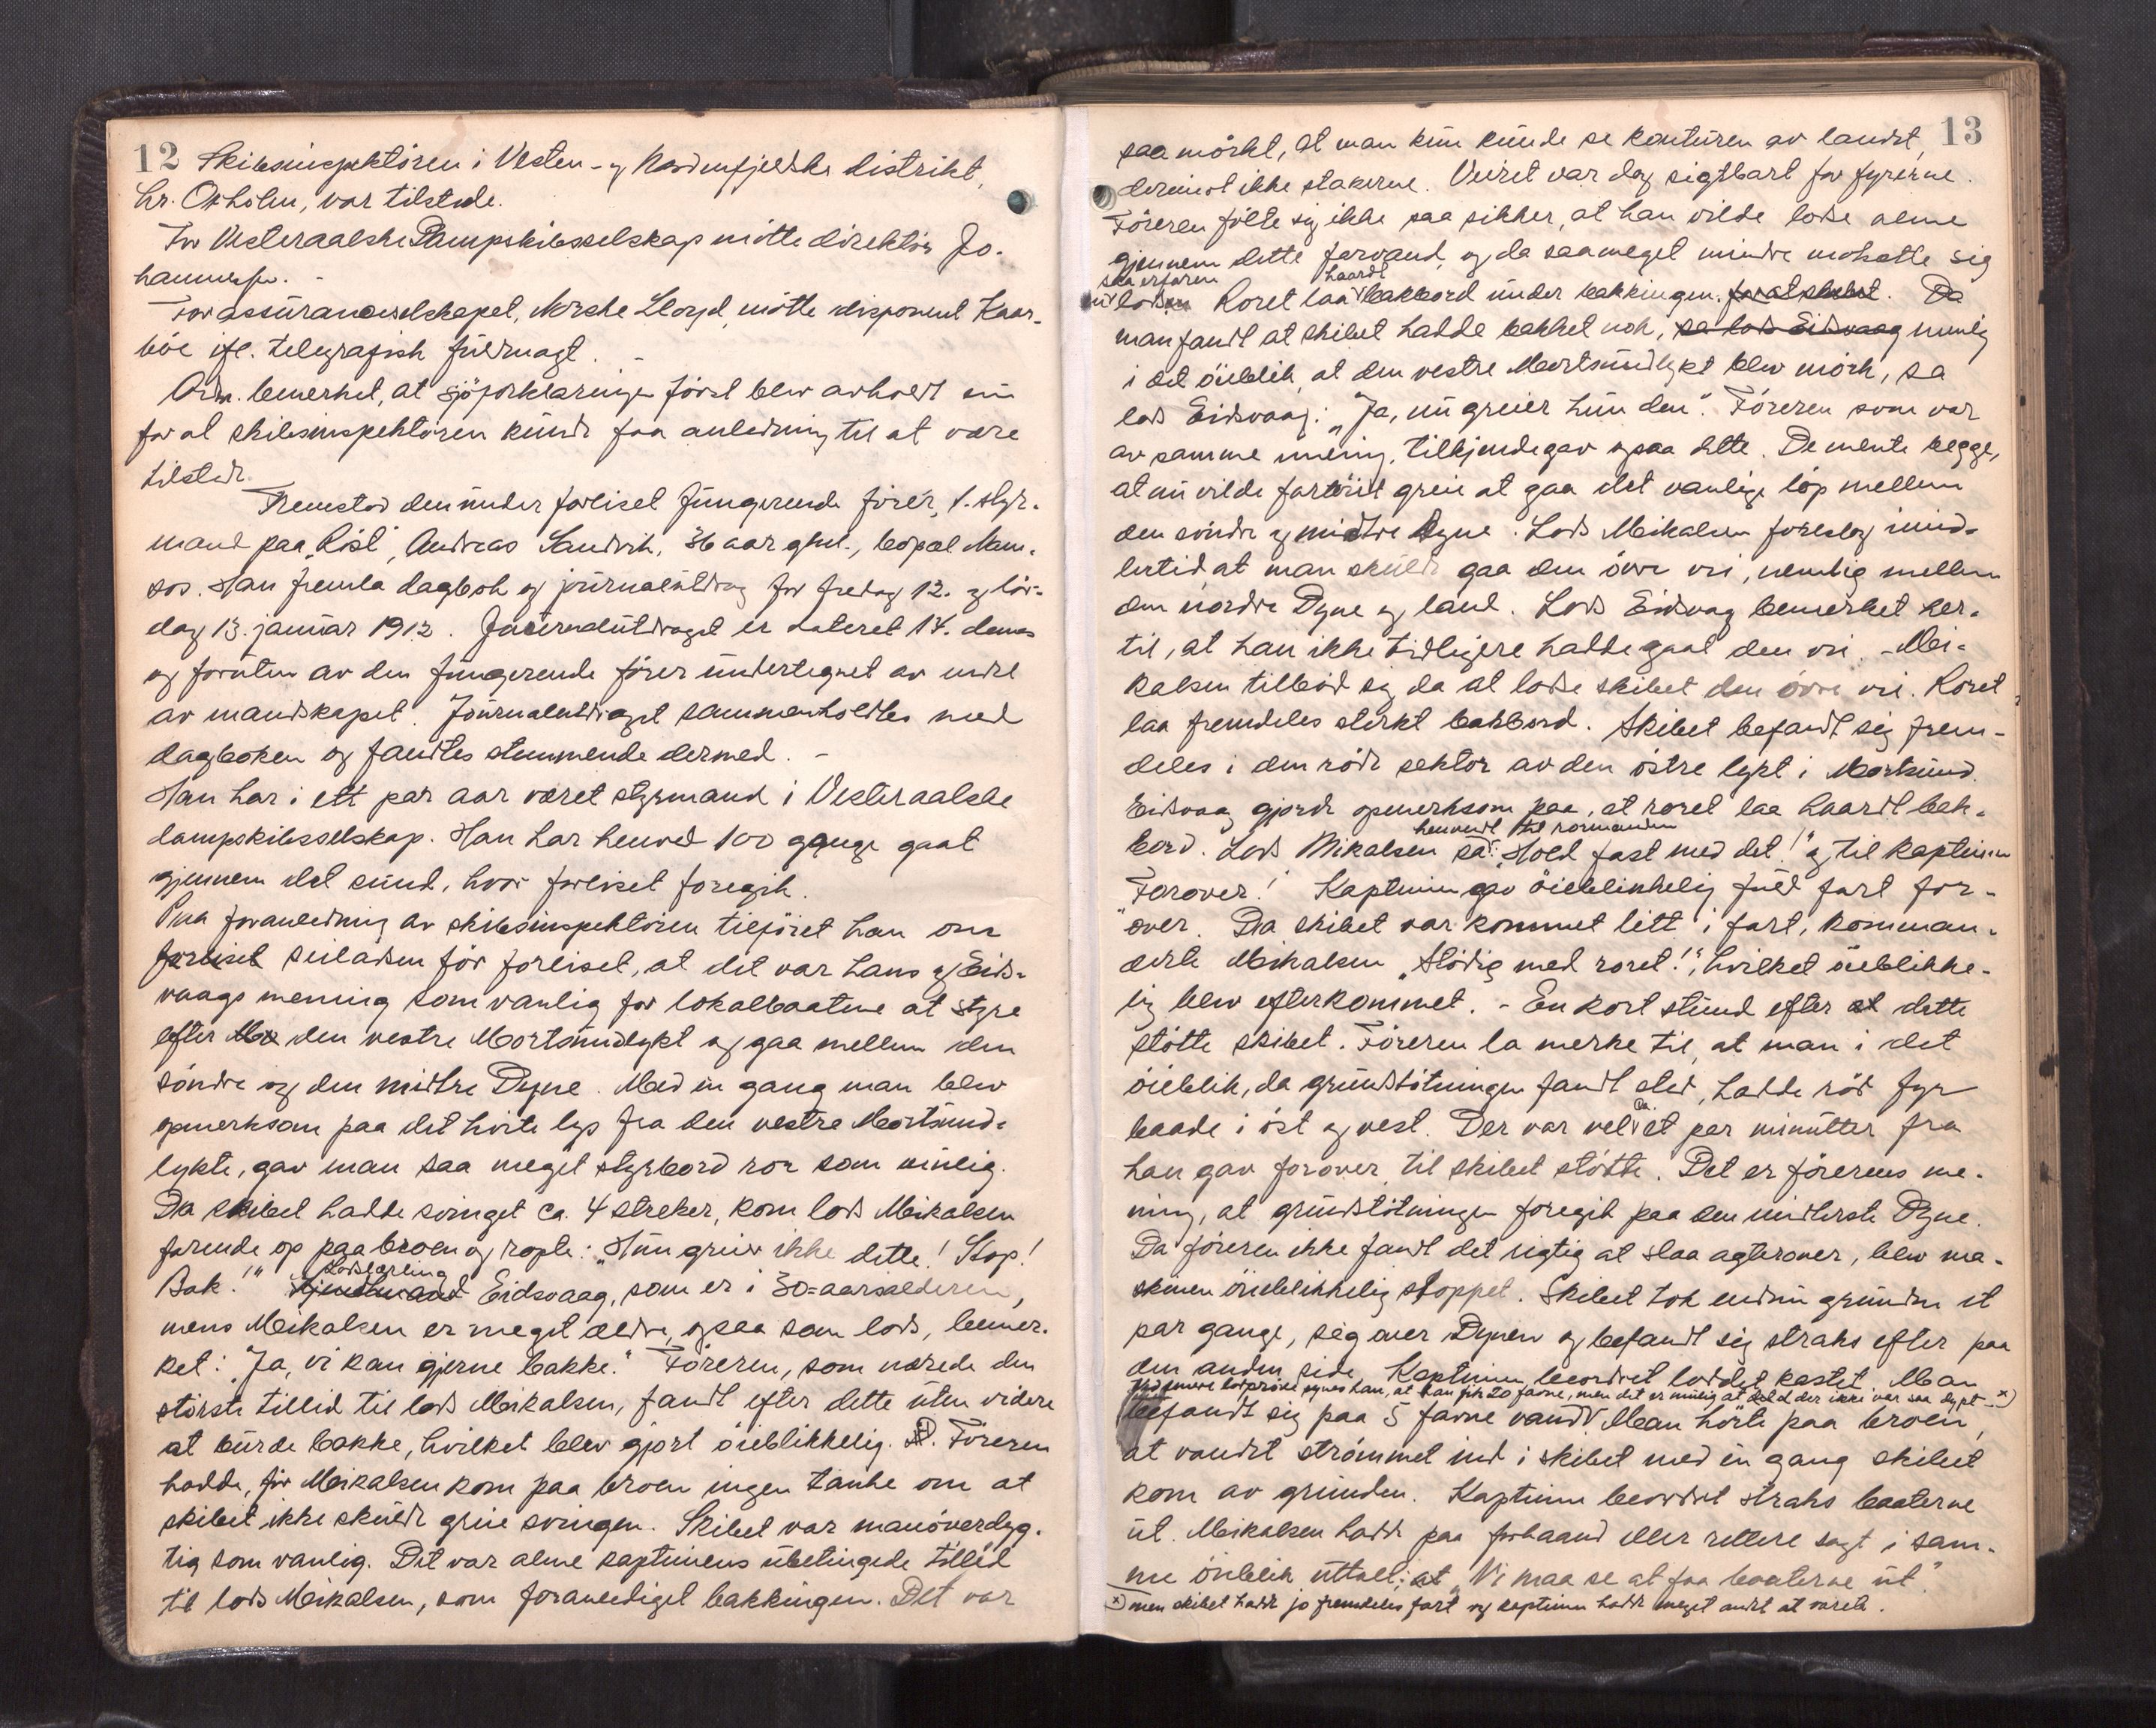 12 Skibsinspektören i Vesten- og Nordenfjeldske distrikt,
hr. Oxholm, var tilstede.
For Vesteraalske Dampskibsselskap mötte direktör Jo-
hannesen. -
For assuranceselskapet, Norske Lloyd, mötte disponent Kaar-
böe ifl. telegrafisk fuldmagt. -
Adm. bemerket, at sjöforklaringen först blev avholdt nu
for at skibsinspektören kunde faa anledning til at være
tilstede.
Fremstod den under forliset fungerende förer, 1. styr-
mand paa "Röst", Andreas Sandvik, 36 aar gml., bopæl Nam-
sos. Han fremla dagbok og journalutdrag for fredag 12. og lör-
dag 13. januar 1912. Journalutdraget er dateret 14. dennes
og foruten av den fungerende förer undertegnet av endel
av mandskapet. Journalutdraget sammenholdtes med
dagboken og fandtes stemmende dermed. -
Han har i ett par aar været styrmand i Vesteraalske
dampskibsselskap. Han har henved 100 gange gaat
gjennem det sund, hvor forliset foregik.
Paa foranledning av skibsinspektören tilföiet han om
forliset seiladsen för forliset, at det var hans og Eids-
vaags mening som vanlig for lokalbaatene at styre
efter Mo den vestre Mortsundlykt og gaa mellem den
söndre og den midtre Dyne. Med en gang man blev
opmerksom paa det hvite lys fra den vestre Mortsund-
lykte, gav man saa meget styrbord ror som mulig.
Da skibet hadde svinget ca. 4 streker, kom lods Meikalsen
farende op paa broen og ropte: "Hun greier ikke dette! Stop!
Lodslærling
Bak!" Kjendtmand Eidsvaag, som er i 30-aarsalderen,
mens Meikalsen er meget ældre, ogsaa som lods, bemer-
ket: "Ja, vi kan gjerne bakke." Föreren, som nærede den
störste tillid til lods Meikalsen, fandt efter dette uten videre
at burde bakke, hvilket blev gjort öieblikkelig. Föreren
hadde, för Meikalsen kom paa broen ingen tanke om at
skibet ikke skulde greie svingen. Skibet var manöverdyg-
tig som vanlig. Det var alene kapteinens ubetingede tillid
til lods Meikalsen, som foranlediget bakkingen. Det var
13
saa mörkt, at man kun kunde se konturen av landet,
derimot ikke stakerne. Veiret var dog sigtbart for fyrerne.
Föreren fölte sig ikke saa sikker, at han vilde lodse alene
gjennem dette farvand, og da saa meget mindre motsatte sig
saa erfaren haardt
en lods. Roret laa bakbord under bakkingen. for at skibet. Da
man fandt at skibet hadde bakket nok, sa lods Eidsvaag nemlig
i det öieblik, at den vestre Mortsundlykt blev mörk, sa
lods Eidsvaag: "Ja, nu greier hun den". Föreren som var
av samme mening, tilkjendegav ogsaa dette. De mente begge,
at nu vilde fartöiet greie at gaa det vanlige löp mellem
den söndre og midtre Dyne. Lods Meikalsen foreslog imid-
lertid, at man skulde gaa den övre vei, nemlig mellem
den nordre Dyne og land. Lods Eidsvaag bemerket her-
til, at han ikke tidligere hadde gaat den vei. - Mei-
kalsen tilböd sig da at lodse skibet den övre vei. Roret
laa fremdeles sterkt bakbord. Skibet befandt sig frem-
deles i den röde sektor av den östre lykt i Mortsund.
Eidsvaag gjorde opmerksom paa, at roret laa haardt bak-
henvendt til rormanden
bord. Lods Mikalsen sa: "Hold fast med det!" og til kapteinen
"Forover!" Kapteinen gav öieblikkelig fuld fart for-
over. Da skibet var kommet litt i fart, komman-
derte Meikalsen "Stödig med roret!", hvilket öieblikke-
lig blev efterkommet. - En kort stund efter at dette
stötte skibet. Föreren la merke til, at man i det
öieblik, da grundstötningen fandt sted, hadde röd fyr
baade i öst og vest. Der var vel ca. et par minutter fra
han gav forover til skibet stötte. Det er förerens me-
ning, at grundstötningen foregik paa den midterste Dyne.
Da föreren ikke fandt det rigtig at slaa agterover, blev ma-
skinen öieblikkelig stoppet. Skibet tok endnu grunden et
par gange, seg over Dynen og befandt sig straks efter paa
den anden side. Kapteinen beordret loddet kastet. Man
senere lodpröve synes han, at han fik 20 favne, men det er mulig at det der ikke var saa dypt x)
befandt sig paa 5 favne vand. Man hörte paa broen,
at vandet strömmet ind i skibet med en gang skibet
kom av grunden. Kapteinen beordret straks baaterne
ut. Meikalsen hadde paa forhaand eller rettere sagt i sam-
me öieblik uttalt: at "Vi maa se at faa baaterne ut".
x) men skibet hadde jo fremdeles fart og kapteinen hadde meget andet at vareta.